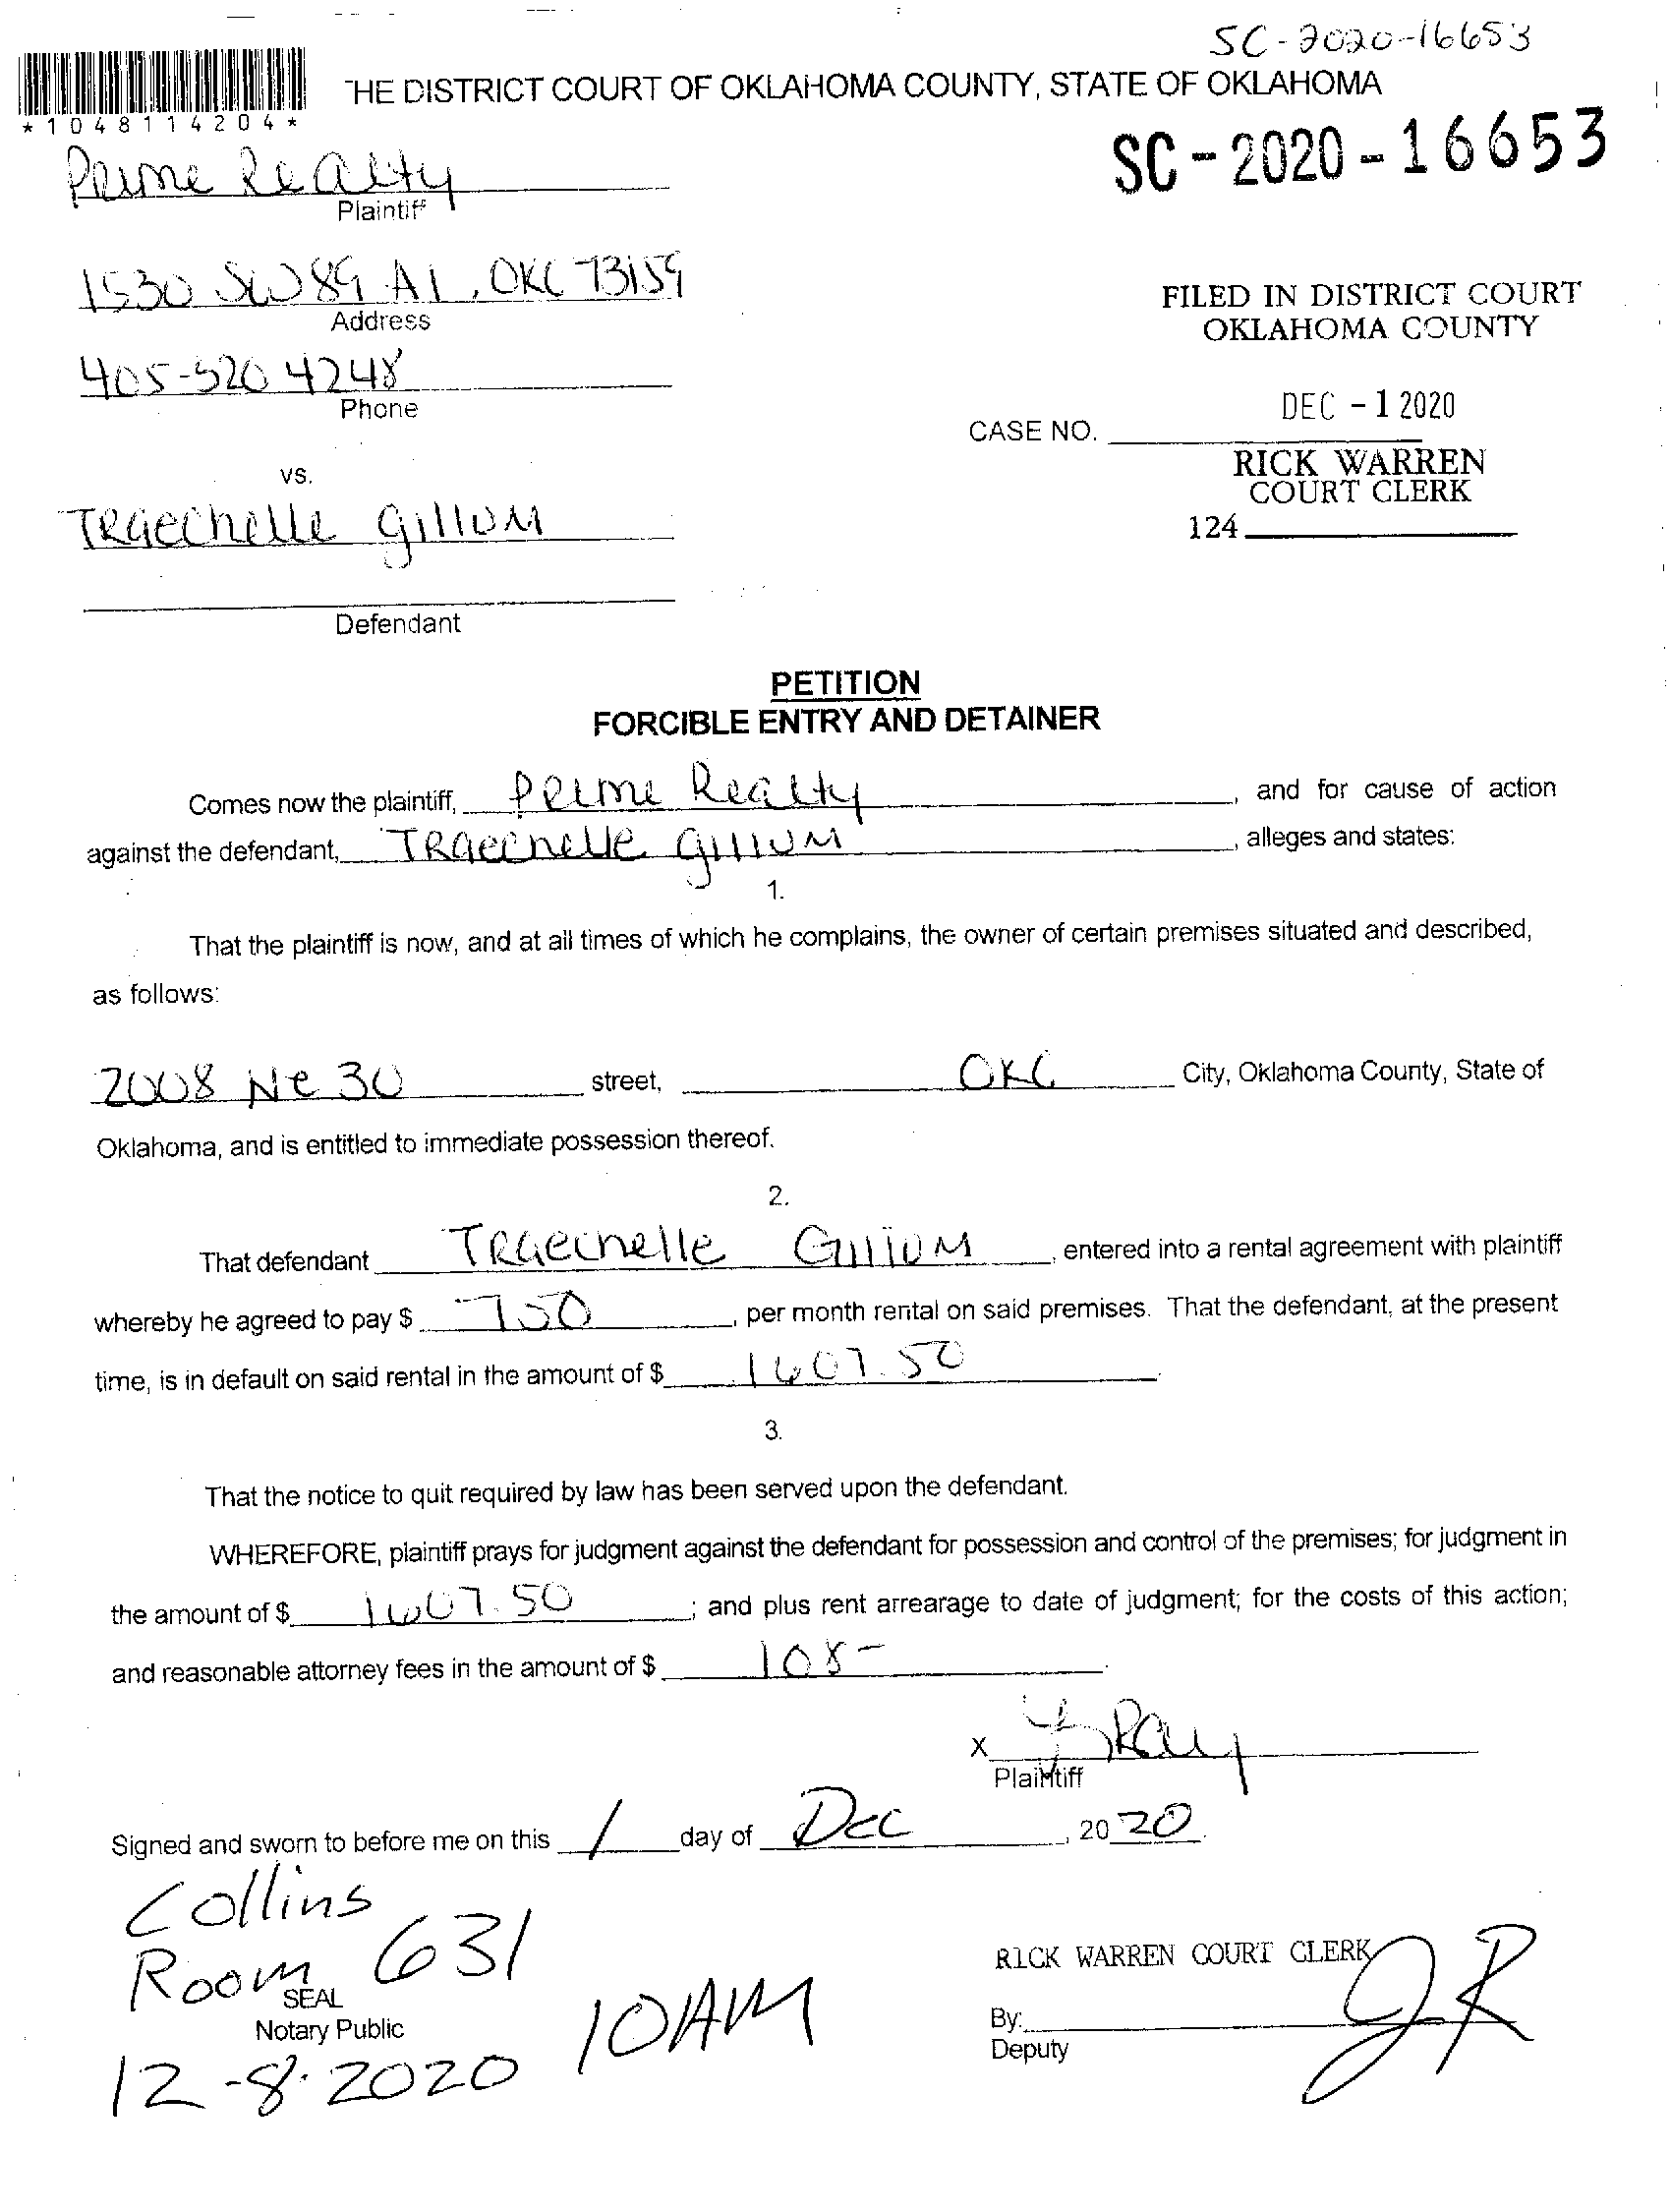 SC-2020-16653
THE DISTRICT COURT OF OKLAHOMA COUNTY, STATE OF OKLAHOMA
*1048114204*
SC-2020-16653
Prime Realty
Plaintiff
1530 SW 89 A1, OKC 73159
Address
FILED IN DISTRICT COURT
OKLAHOMA COUNTY
405-520 4248
Phone
DEC -1 2020
CASE NO.
RICK WARREN
COURT CLERK
124
vs.
Traechelle Gillum
Defendant
PETITION
FORCIBLE ENTRY AND DETAINER
Comes now the plaintiff, Prime Realty, and for cause of action
against the defendant, Traechelle Gillum, alleges and states:
1.
That the plaintiff is now, and at all times of which he complains, the owner of certain premises situated and described,
as follows:
2008 Ne 30 street, OKC City, Oklahoma County, State of
Oklahoma, and is entitled to immediate possession thereof.
2.
That defendant Traechelle Gillum, entered into a rental agreement with plaintiff
whereby he agreed to pay $ 750, per month rental on said premises. That the defendant, at the present
time, is in default on said rental in the amount of $ 1607.50.
3.
That the notice to quit required by law has been served upon the defendant.
WHEREFORE, plaintiff prays for judgment against the defendant for possession and control of the premises; for judgment in
the amount of $ 1607.50; and plus rent arrearage to date of judgment; for the costs of this action;
and reasonable attorney fees in the amount of $ 108-.
X
Plaintiff
Signed and sworn to before me on this 1 day of Dec, 2020.
Collins
Room 631
SEAL
Notary Public
10AM
12-8-2020
RICK WARREN COURT CLERK
By: JR
Deputy